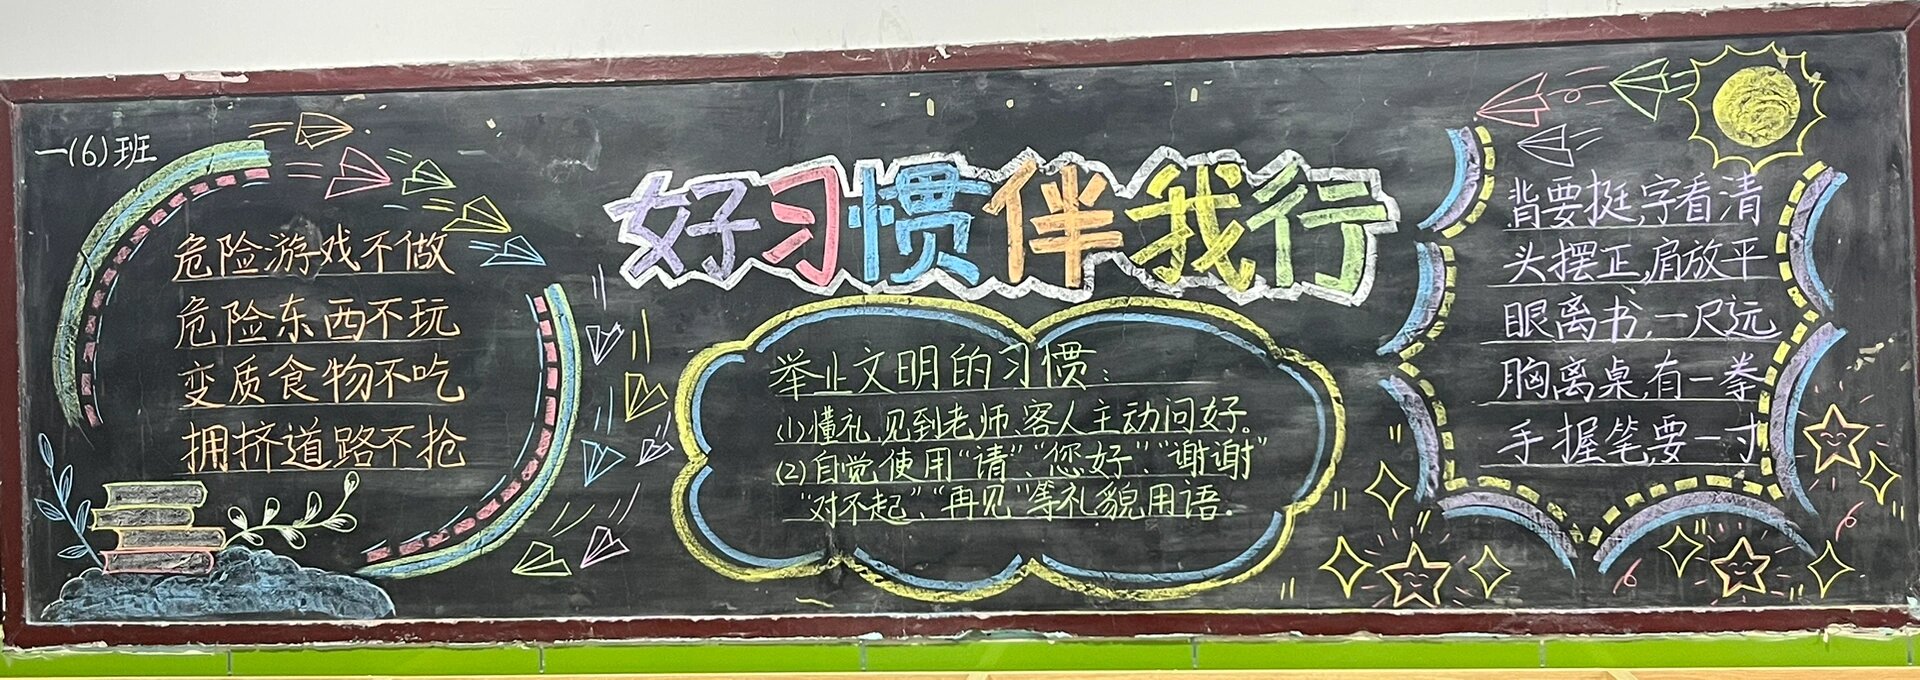 一(6)班
好习惯伴我行
危险游戏不做
危险东西不玩
变质食物不吃
拥挤道路不抢
举止文明的习惯：
(1)懂礼,见到老师、客人主动问好。
(2)自觉使用“请”、“您好”、“谢谢”
“对不起”、“再见”等礼貌用语.
背要挺,字看清
头摆正,肩放平
眼离书,一尺远
胸离桌,有一拳
手握笔,要一寸